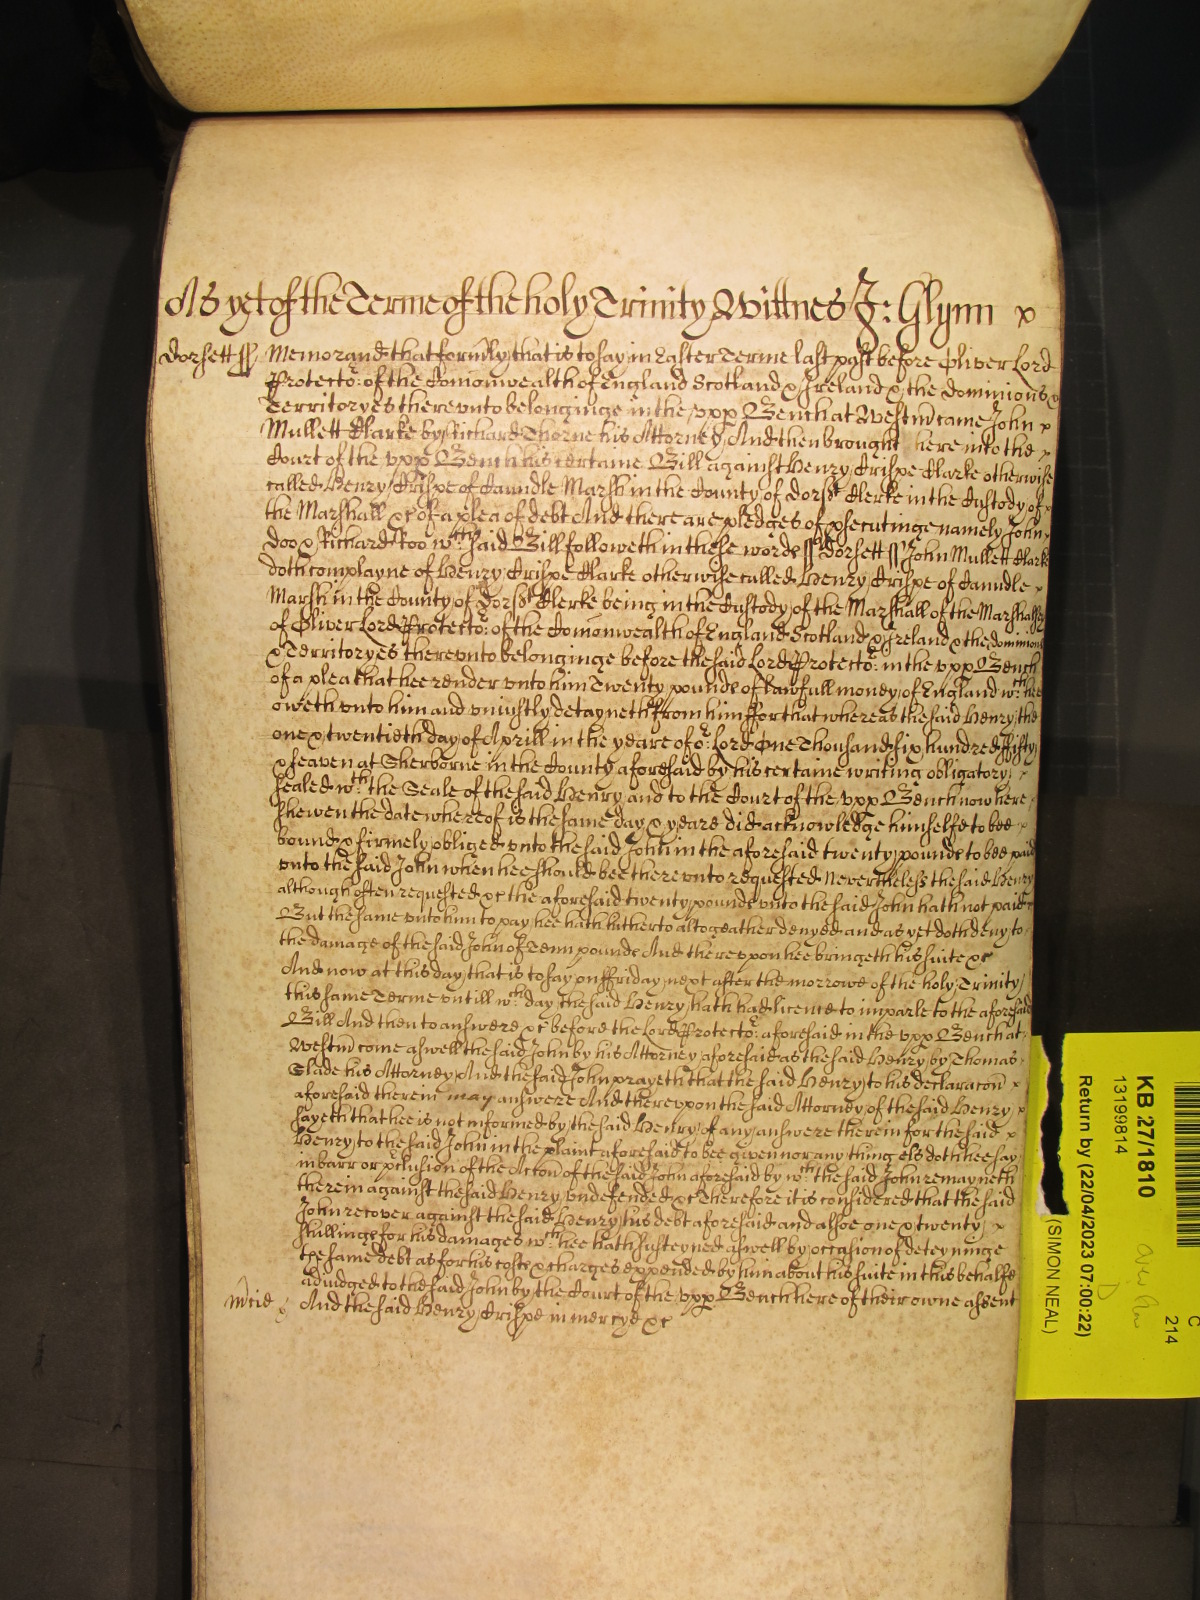 As yet of the Terme of the holy Trinity Wittnes J: Glynn x
Dorsett ss Memorand that formrly that is to say in Easter Terme last past before Oliver Lord
Protector: of the Comonwealth of England Scotland & Ireland & the Dominions &
Territoryes therevnto belonginge in the vpp Bench at Westm came John x
Mullett Clarke by Richard Thorne his Attorney And then brought here into the x
Court of the vpp Bench his certaine Bill against Henry Crispe Clarke otherwise
called Henry Crispe of Caundle Marsh in the County of Dorst Clerke in the Custody of
the Marshall &c of a plea of debt And there are pledges of psecutinge namely John
Doo & Richard Roo wch said Bill followeth in these words ss Dorsett ss John Mullett Clarke
doth complayne of Henry Crispe Clarke otherwise called Henry Crispe of Caundle x
Marsh in the County of Dorst Clerke being in the Custody of the Marshall of the Marshallsey
of Oliver Lord Protector: of the Comonwealth of England Scotland & Ireland & the dominions
& Territoryes therevnto belonginge before the said Lord Protector: in the vpp Bench
of a plea that hee render vnto him Twenty pounds of lawfull money of England wch hee
oweth vnto him and vniustly detayneth from him ffor that whereas the said Henry the
one & twentieth day of Aprill in the yeare of or: Lord One Thousand six hundred ffifty
& seaven at Sherborne in the County aforesaid by his certaine writing obligatory x
sealed wth the Seale of the said Henry and to the Court of the vpp Bench now here
shewen the date whereof is the same day & yeare did acknowledge himselfe to bee x
bound & firmely obliged vnto the said John in the aforesaid twenty pounds to bee paid
vnto the said John when hee should bee therevnto requested Neverthelesse the said Henry
although often requested &c the aforesaid twenty pounds vnto the said John hath not paid
But the same vnto him to pay hee hath hitherto altogeather denyed and as yet doth deny to
the damage of the said John of Tenn pounds And therevpon hee bringeth his suite &c
And now at this day that is to say on ffriday next after the morrowe of the holy Trinity
this same Terme vntill wch day the said Henry hath had licence to imparle to the aforesaid
Bill And then to answere &c before the Lord Protector: aforesaid in the vpp Bench at
Westm come aswell the said John by his Attorney aforesaid as the said Henry by Thomas
Slade his Attorney And the said John prayeth that the said Henry to his declaracon x
aforesaid therein may answere And therevpon the said Attorney of the said Henry x
sayeth that hee is not informed by the said Henry of any answere therein for the said x
Henry to the said John in the plaint aforesaid to bee given nor any thing els doth hee say
in barr or pclusion of the Acton of the said John aforesaid by wch the said John remayneth
therein against the said Henry vndefended &c Therefore it is considered that the said
John recover against the said Henry his debt aforesaid and alsoe one & twenty x
shillings for his damages wch hee hath susteyned aswell by occasion of deteyninge
the same debt as for his costs & charges expended by him about his suite in this behalfe
adiudged to the said John by the Court of the vpp Bench here of their owne assent
mcie And the said Henry Crispe in mercye &c
KB 27/1810
13199814
Return by (22/04/2023 07:00:22)
(SIMON NEAL)
C
214